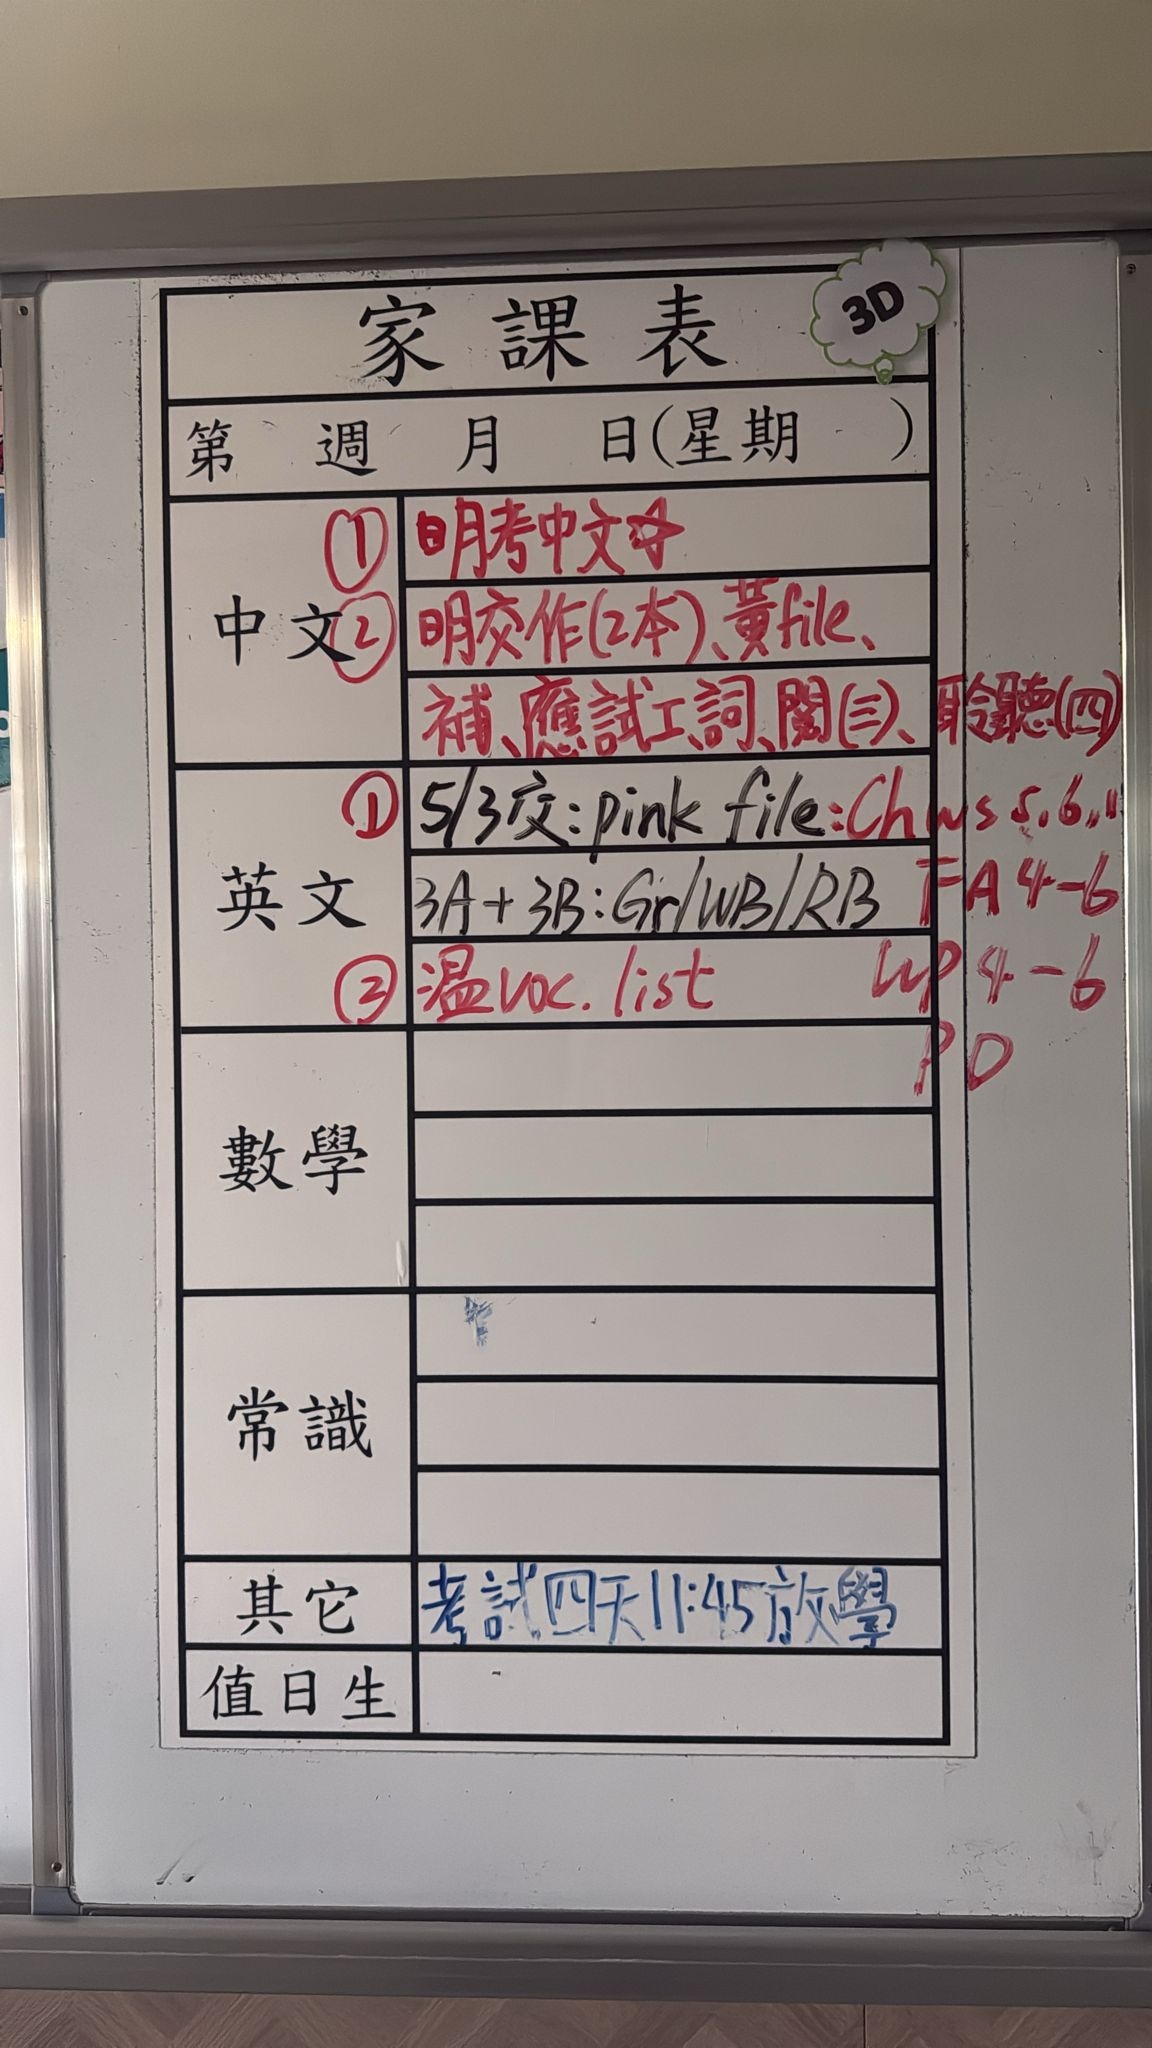 家課表
3D
第 週 月 日(星期 )
中文
① 明考中文☆
② 明交作(2本)、黃file、
補、應試工、詞、閱(三)、聆聽(四)
英文
① 5/3交:pink file:Ch ws 5,6,11
3A+3B:Gr/WB/RB FA 4-6
② 溫voc. list WP 4-6
PD
數學
常識
其它
考試四天11:45放學
值日生